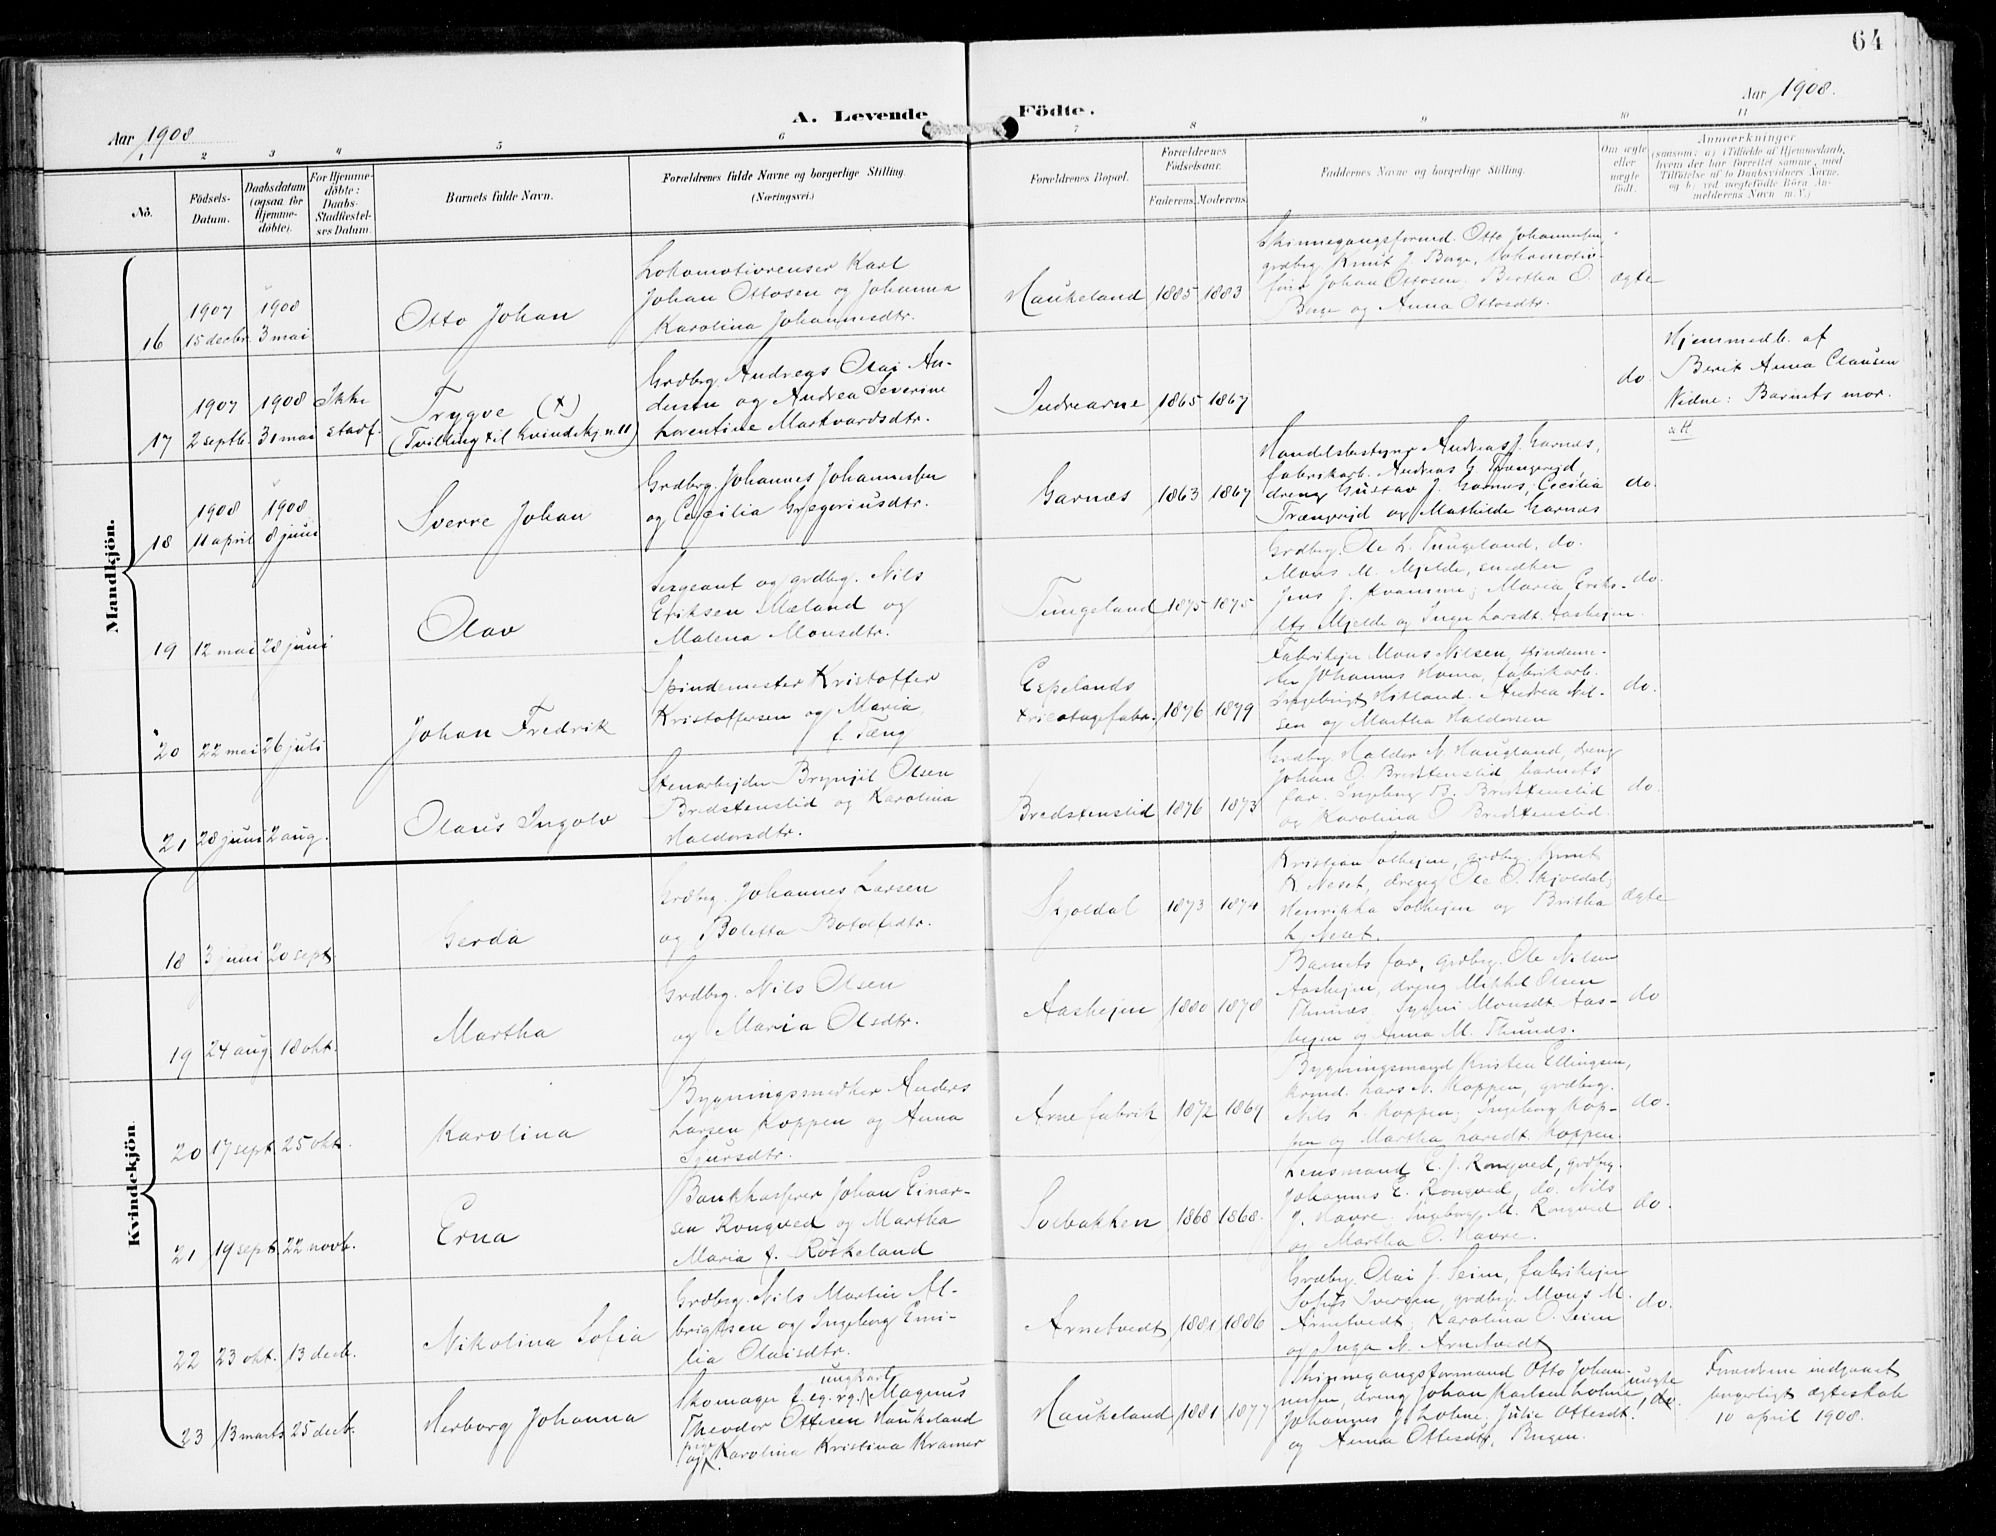 64
Aar 1908
A. Levende Födte.
Aar 1908.
1 2 3 4 5 6 7 8 9 10 11
Nö.
Födsels-
Datum.
Daabsdatum
(ogsaa for
Hjemme-
döbte).
For Hjemme-
döbte:
Daabs-
Stadfæstel-
ses Datum.
Barnets fulde Navn.
Forældrenes fulde Navne og borgerlige Stilling.
(Næringsvei.)
Forældrenes Bopæl.
Forældrenes
Födselsaar.
Faderens. Moderens.
Faddernes Navne og borgerlige Stilling.
Om ægte
eller
uægte
födt.
Anmærkninger
(saasom: a) i Tilfælde af Hjemmedaab,
hvem der har forrettet samme, med
Tilföielse af to Daabsvidners Navne,
og b) ved uægtefödte Börn An-
melderens Navn m. V.)
Mandkjön.
16
1907
15 decbr.
1908
3 mai
Otto Johan
Lokomotivrenser Karl
Johan Ottosen og Johanna
Karolina Johannesdtr.
Haukeland 1885 1883
Skinnegangsformd. Otto Johannesen,
grdbrg. Knut J. Borge, Lokomotiv-
förer Johan Ottosen. Bertha O.
Borge og Anna Ottosdtr.
ægte
17
1907
2 septb.
1908
31 mai
Ikke
stadf.
Trygve (+)
(Tvilling til kvindekj. n. 11)
Grdbrg. Andreas Olai An-
dersen og Andrea Severine
Laventine Markvardsdtr.
Indrearne 1865 1867
do.
Hjemmedb. af
Berit Anna Clausen
Vidne: Barnets mor.
18
1908
11 april
1908
8 juni
Sverre Johan
Grdbrg. Johannes Johannesen
og Cecilia Gregoriusdtr.
Garnæs 1863 1867
Handelsbestyrer Andreas J. Garnæs,
fabrikarb. Andreas G. Trængereid,
dreng Gustav J. Garnæs, Cecilia
Trængereid og Mathilde Garnæs
do.
19 12 mai 28 juni
Olav
Sergeant og grdbrg. Nils
Eriksen Mæland og
Malena Monsdtr.
Tungeland 1875 1875
Grdbrg. Ole L. Tungeland, do.
Mons M. Mjelde, snedker
Jens J. Kvamme; Maria Eriks-
dtr. Mjelde og Inga Larsdt. Aashejm.
do.
20 22 mai 26 juli
Johan Fredrik
Spindemester Kristoffer
Kristoffersen og Maria
f. Tæng
Espelands
tricotagefabr. 1876 1879
Fabrikejer Mons Nilsen, spindeme-
ster Johannes Homa, fabrikarb.
Ingebrigt Hitland. Andrea Nil-
sen og Martha Haldorsen
do.
21 28 juni 2 aug.
Olaus Ingolv
Stenarbejder Brynjil Olsen
Bredstenslid og Karolina
Haldorsdtr.
Bredstenslid 1876 1873
Grdbrg. Haldor N. Haugland, dreng
Johan O. Bredstenslid barnets
far. Ingeborg B. Bredstenslid
og Karolina O. Bredstenslid.
do.
Kvindekjön.
18 3 juni 20 sept.
Gerda
Grdbrg. Johannes Larsen
og Boletta Botolfsdtr.
Skjoldal 1873 1874
Kristian Solhejm, grdbrg. Knut
K. Neset, dreng Ole O. Skjoldal;
Henrikka Solhejm og Britha
L. Neset.
ægte
19 24 aug 18 okt.
Martha
Grdbrg. Nils Olsen
og Maria Olsdtr.
Aashejm 1880 1878
Barnets far, grdbrg. Ole Nilsen
Aashejm, dreng Mikkel Olsen
Thunæs. Syneve Monsdt. Aas-
hejm og Anna M. Thunæs.
do
20 17 sept. 25 okt.
Karolina
Bygningssnedker Anders
Larsen Koppen og Anna
Sjursdtr.
Arne fabrik 1872 1869
Bygningsmand Kristen Ellingsen,
krmd. Lars N. Koppen, grdbrg.
Nils L. Koppen; Ingeborg Kop-
pen og Martha Larsdt. Koppen.
do.
21 19 sept. 22 novb.
Erna
Bankkasserer Johan Einar-
sen Rongved og Martha
Maria f. Röskeland
Solbakken 1868 1868.
Lensmand E. J. Rongved, grdbrg.
Johannes E. Rongved, do. Nils
J. Havre. Ingeborg M. Rongved
og Martha O. Havre.
do.
22 23 okt. 13 decb.
Nikolina Sofia
Grdbrg. Nils Martin Al-
brigtsen og Ingeborg Emi-
lia Olaisdtr.
Arnetvedt 1881 1886
Grdbrg. Olai J. Seim, fabrikejer
Sofus Iversen, grdbrg. Mons M.
Arnetvedt; Karolina O. Seim
og Inga N. Arnetvedt
do.
23 13 marts 25 decb.
Herborg Johanna
ungkarl
Skomager f. eg. rg. Magnus
Theodor Ottesen Haukeland
og pige Karolina Kristina Kramer
Haukeland 1881 1877
Skinnegangsformand Otto Johan-
nesen, dreng Johan Karlsen Lohne,
Johannes J. Lohne, Julie Ottesdt.
og Anna Ottesdt., Bergen.
uægte
do.
Forældrene indgaaet
borgerligt ægteskab
10 april 1908.